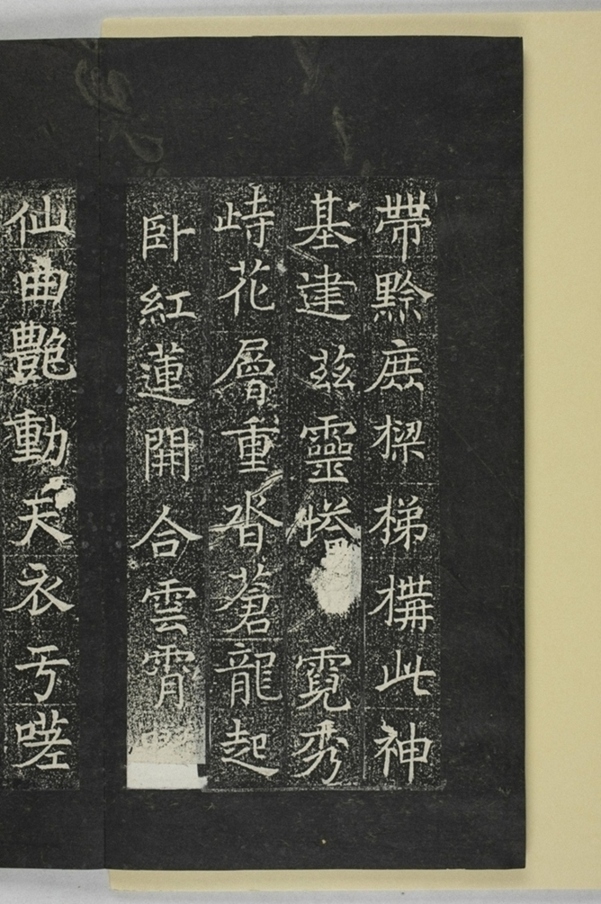 帶黔庶樑梯構此神
基建茲靈塔霓秀
峙花層重沓蒼龍起
卧紅蓮開合雲霄
仙曲艷動天衣亏嗟